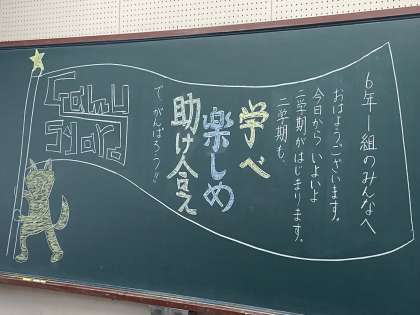 6年1組のみんなへ
おはようございます。
今日から いよいよ
二学期がはじまります。
二学期も、
学べ
楽しめ
助け合え
で、がんばろう!!